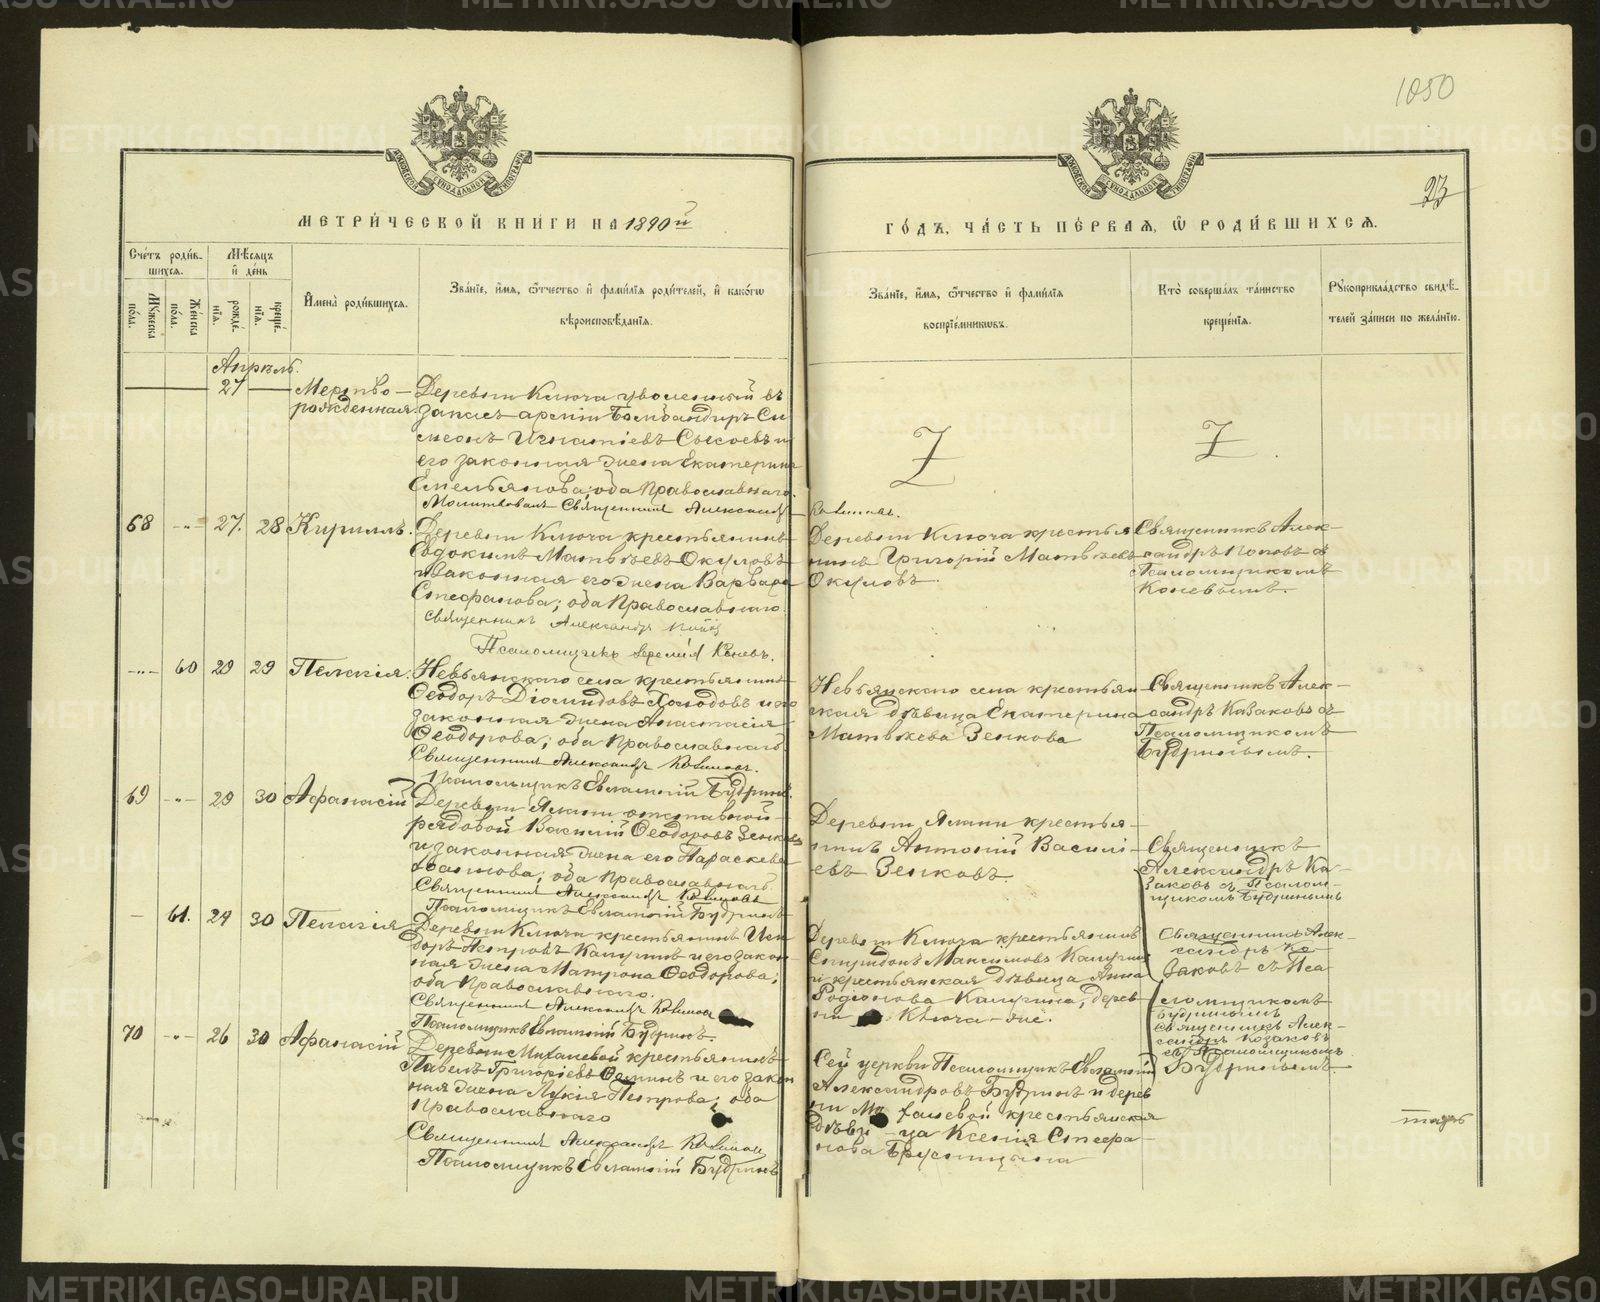 1050
23
МЕТРИ́ЧЕСКОЙ КНИ́ГИ НА 1890й
ГО́ДЪ, ЧА́СТЬ ПЕ́РВАЯ, Ѽ РОДИ́ВШИХСѦ.
Сче́тъ роди́в-
шихсѧ.
Мѣ́сѧцъ
и҆ де́нь
И҆мена̀ роди́вшихсѧ.
Зва́нїе, и҆́мѧ, ѻ҆́тчество и҆ фами́лїѧ роди́телей, и҆ како́гѡ
вѣроисповѣ́данїѧ.
Мꙋ́жеска
по́ла.
Же́нска
по́ла.
рожде́-
нїѧ.
креще́-
нїѧ.
Зва́нїе, и҆́мѧ, ѻ҆́тчество и҆ фами́лїѧ
воспрїе́мникѡвъ.
Кто̀ соверша́лъ та́инство
креще́нїѧ.
Рꙋкоприкла́дство свидѣ́-
телей за́писи по жела́нїю.
Апрѣль.
27
Мертво-
рожденная
Деревни Ключа уволенный въ
запасъ арміи Бомбандиръ Си
меонъ Игнатіевъ Сысоевъ и
его законная жена Екатерина
Емельянова; оба Православнаго.
Молитвовалъ Священникъ Александръ
68 -"- 27. 28 Кириллъ.
Деревни Ключа крестьянинъ
Евдокимъ Матвѣевъ Окуловъ
и законная его жена Варвара
Стефанова; оба Православнаго.
Священникъ Александръ
Псаломщикъ Іеремія Коневъ.
Деревни Ключа крестья
нинъ Григорій Матвѣевъ
Окуловъ.
Священникъ Алек-
сандръ Поповъ съ
Псаломщикомъ
Коневымъ.
-"- 60 29 29 Пелагія.
Невьянскаго села крестьянинъ
Ѳеодоръ Діомидовъ Холодовъ и его
законная жена Анастасія
Ѳеодорова; оба Православнаго.
Священникъ Александръ Казаковъ.
Псаломщикъ Евлампій Будринъ.
Невьянскаго села крестьян-
ская дѣвица Екатерина
Матвѣева Зенкова
Священникъ Алек-
сандръ Казаковъ съ
Псаломщикомъ
Будринымъ.
69 -"- 29 30 Аѳанасій
Деревни Ялани отставной
рядовой Василій Ѳеодоровъ Зенковъ
и законная жена его Параскева
; оба Православнаго.
Священникъ Александръ Казаковъ
Псаломщикъ Евлампій Будринъ
Деревни Ялани крестья-
нинъ Антоній Василі-
евъ Зенковъ.
Священникъ
Александръ Ка-
заковъ съ Псалом-
щикомъ Будринымъ
- 61. 24 30 Пелагія
Деревни Ключа крестьянинъ Иси
доръ Петровъ Калугинъ и его закон-
ная жена Матрона Ѳеодорова;
оба Православнаго.
Священникъ Александръ Казаковъ
Псаломщикъ Евлампій Будринъ.
Деревни Ключа крестьянинъ
Спиридонъ Максимовъ Калугинъ
и крестьянская дѣвица Анна
Родіонова Калугина, дерев-
ни Ключа-же.
Священникъ Алек-
сандръ Ка-
заковъ съ Пса-
ломщикомъ
Будринымъ
70 -"- 26 30 Аѳанасій
Деревни Михалевой крестьянинъ
Павелъ Григорьевъ Ѳоминъ и его закон
ная жена Лукія Петрова; оба
Православнаго
Священникъ Александръ Казаковъ
Псаломщикъ Евлампій Будринъ
Сей церкви Псаломщикъ Евлампій
Александровъ Будринъ и дерев
ни Михалевой крестьянская
дѣви-ца Ксенія Стефа-
нова Брусницына
Священникъ Алек-
сандръ Казаковъ
съ Псаломщикомъ
Будринымъ.
METRIKI.GASO-URAL.RU